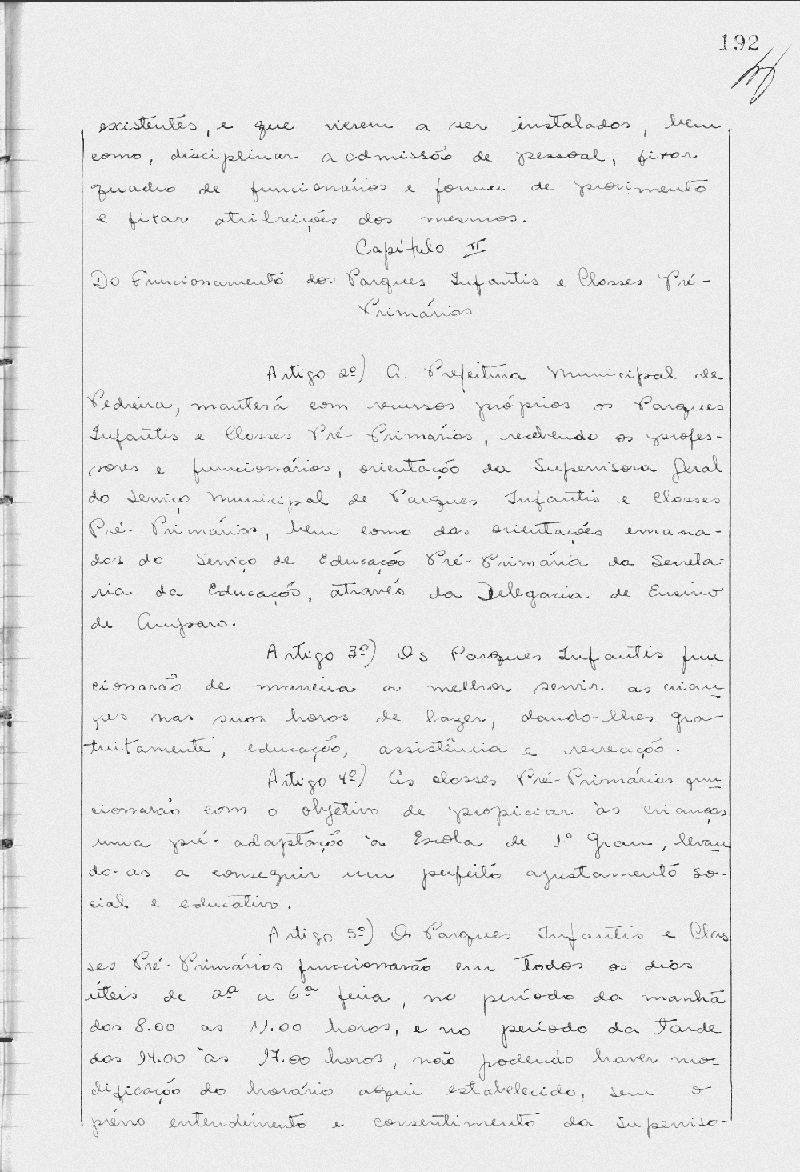 192
existentes, e que vierem a ser instalados, bem
como, disciplinar a admissão de pessoal, fixar
quadro de funcionários e forma de provimento
e fixar atribuições dos mesmos.
Capítulo II
Do Funcionamento dos Parques Infantis e Classes Pré-
Primárias
Artigo 2º) A Prefeitura Municipal de
Pedreira, manterá com recursos próprios os Parques
Infantis e Classes Pré-Primárias, recebendo os profes-
sores e funcionários, orientação da Supervisora Geral
do Serviço Municipal de Parques Infantis e Classes
Pré-Primárias, bem como das orientações emana-
das do Serviço de Educação Pré-Primária da Secreta-
ria da Educação, através da Delegacia de Ensino
de Amparo.
Artigo 3º) Os Parques Infantis fun
cionarão de maneira a melhor servir as crian
ças nas suas horas de lazer, dando-lhes gra-
tuitamente, educação, assistência e recreação.
Artigo 4º) As classes Pré-Primárias fun
cionarão com o objetivo de propiciar às crianças
uma pré-adaptação à Escola de 1º Grau, levan
do-as a conseguir um perfeito ajustamento so-
cial e educativo.
Artigo 5º) Os Parques Infantis e Clas
ses Pré-Primárias funcionarão em todos os dias
úteis de 2ª a 6ª feira, no período da manhã
das 8.00 as 11.00 horas, e no período da tarde
das 14.00 às 17.00 horas, não podendo haver mo-
dificação do horário aqui estabelecido, sem o
prévio entendimento e consentimento da Superviso-